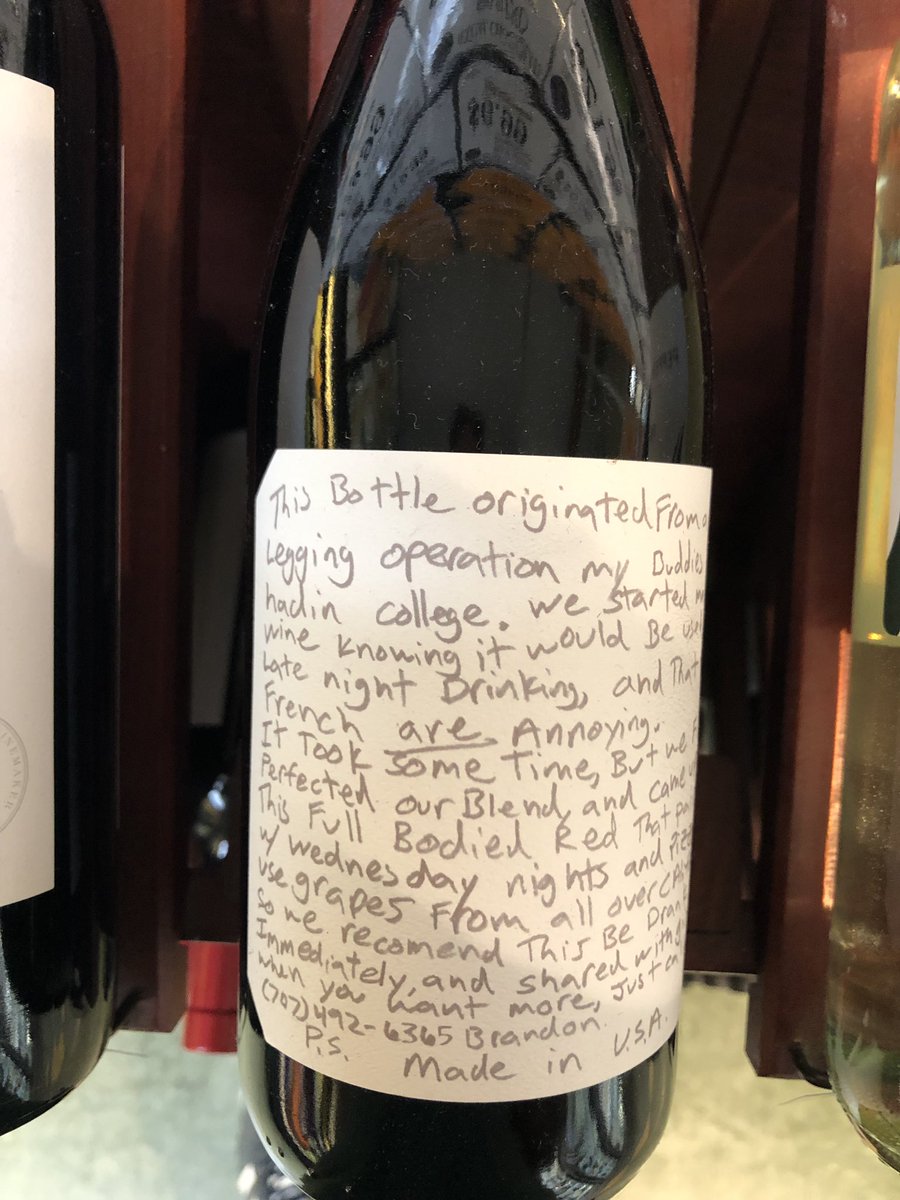 This Bottle originated From a
Legging operation my Buddies
had in college. We started m
wine knowing it would Be use
Late night Drinking, and That
French are Annoying.
It Took some Time, But we F
Perfected our Blend, and came u
This Full Bodied Red That pai
w/ wednesday nights and Pizz
use grapes From all over CA
So we recomend This Be Drank
Immediately, and shared with
when you want more, Just ca
(707)492-6365 Brandon.
P.S. Made in U.S.A.
INEMAKER